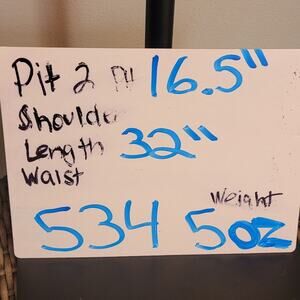 Pit 2 Pit 16.5"
Shoulder
Length 32"
Waist
Weight
534 5oz